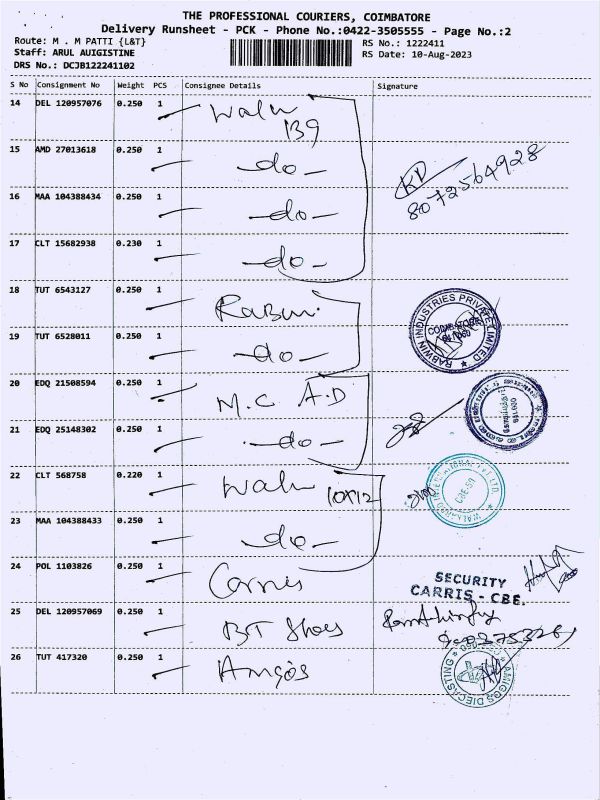 THE PROFESSIONAL COURIERS, COIMBATORE
Delivery Runsheet - PCK - Phone No.:0422-3505555 - Page No.:2
Route: M . M PATTI {L&T}
RS No.: 1222411
Staff: ARUL AUIGISTINE
RS Date: 10-Aug-2023
DRS No.: DCJB122241102
S No Consignment No Weight PCS Consignee Details Signature
14 DEL 120957076 0.250 1
139
15 AMD 27013618 0.250 1 -do-
8072564928
16 MAA 104388434 0.250 1 -do-
17 CLT 15682938 0.230 1 -do-
18 TUT 6543127 0.250 1
RABWIN INDUSTRIES PRIVATE LIMITED
COIMBATORE
19 TUT 6528011 0.250 1 -do-
20 EDQ 21508594 0.250 1 M.C A.D
21 EDQ 25148302 0.250 1 -do-
22 CLT 568758 0.220 1 10x12
CBE-59
23 MAA 104388433 0.250 1 -do-
24 POL 1103826 0.250 1 Carris
SECURITY
CARRIS - CBE.
25 DEL 120957069 0.250 1 BT Shoes
26 TUT 417320 0.250 1 Amigos
AMIGOS DIECASTING